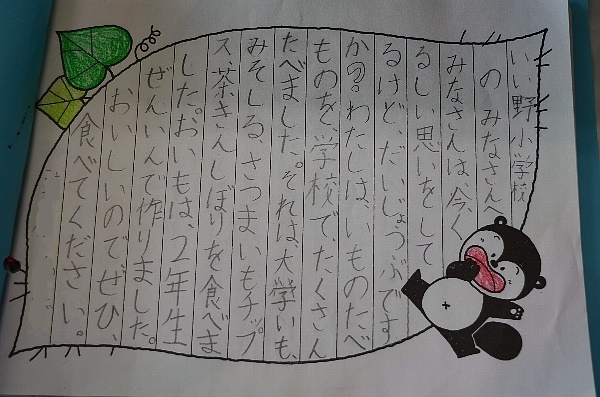 いい野小学校
のみなさん
みなさんは、今、く
るしい思いをして
るけど、だいじょうぶです
か。わたしは、いものたべ
ものを、学校で、たくさん
たべました。それは、大学いも、
みそしる、さつまいもチップ
ス、茶きんしぼりを食べま
した。おいもは、2年生
ぜんいんで作りました。
おいしいので、ぜひ、
食べてください。